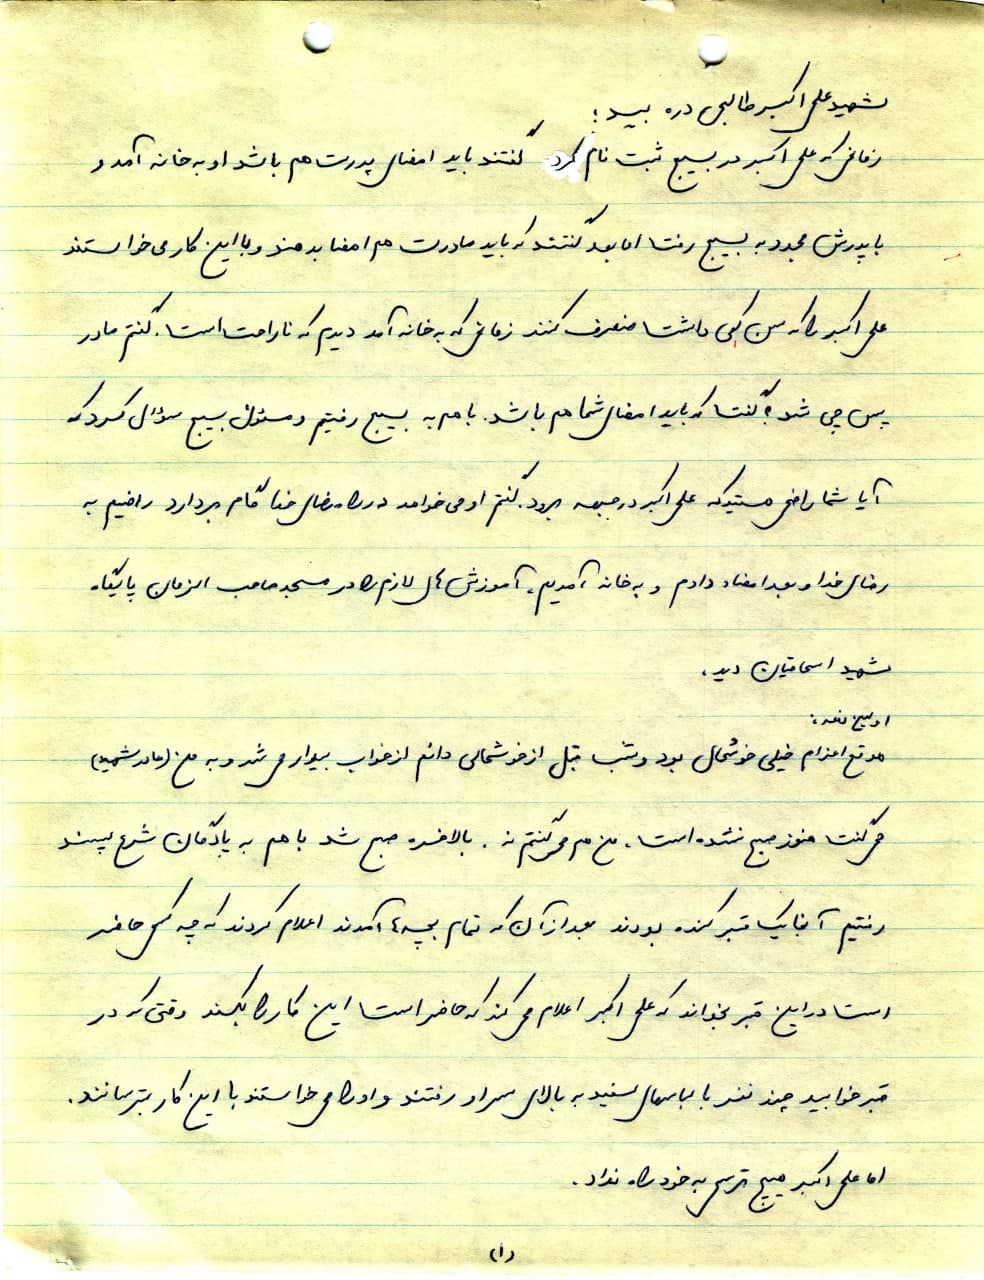 شهید علی اکبر طالبی دره بید :
زمانی که علی اکبر در بسیج ثبت نام کرد گفتند باید امضای پدرت هم باشد او به خانه آمد و
با پدرش مجدد به بسیج رفت اما بعد گفتند که باید مادرت هم امضا بدهند و با این کار می خواستند
علی اکبر را که سن کمی داشت منصرف کنند زمانی که به خانه آمد دیدم که ناراحت است . گفتم مادر
پس چی شد ؟ گفت که باید امضای شما هم باشد . با هم به بسیج رفتیم و مسئول بسیج سؤال کرد که
آیا شما راضی هستید که علی اکبر در جبهه برود . گفتم او می خواهد در راه رضای خدا گام بردارد راضیم به
رضای خدا و بعد امضاء دادم و به خانه آمدیم ، آموزش های لازم را در مسجد صاحب الزمان پایگاه
شهید اسحاقیان دید .
اولین دفعه :
موقع اعزام خیلی خوشحال بود و شب قبل از خوشحالی دائم از خواب بیدار می شد و به من (مادر شهید)
می گفت هنوز صبح نشده است ، من هم می گفتم نه . بالاخره صبح شد با هم به پادگان شرع پسند
رفتیم آنجا یک قبر کنده بودند بعد از آن که تمام بچه ها آمدند اعلام کردند که چه کسی حاضر
است در این قبر بخوابد که علی اکبر اعلام می کند که حاضر است این کار را بکند وقتی که در
قبر خوابید چند نفر با لباسهای سفید به بالای سر او رفتند و او را می خواستند با این کار بترسانند .
اما علی اکبر هیچ ترسی به خود راه نداد .
(۱)